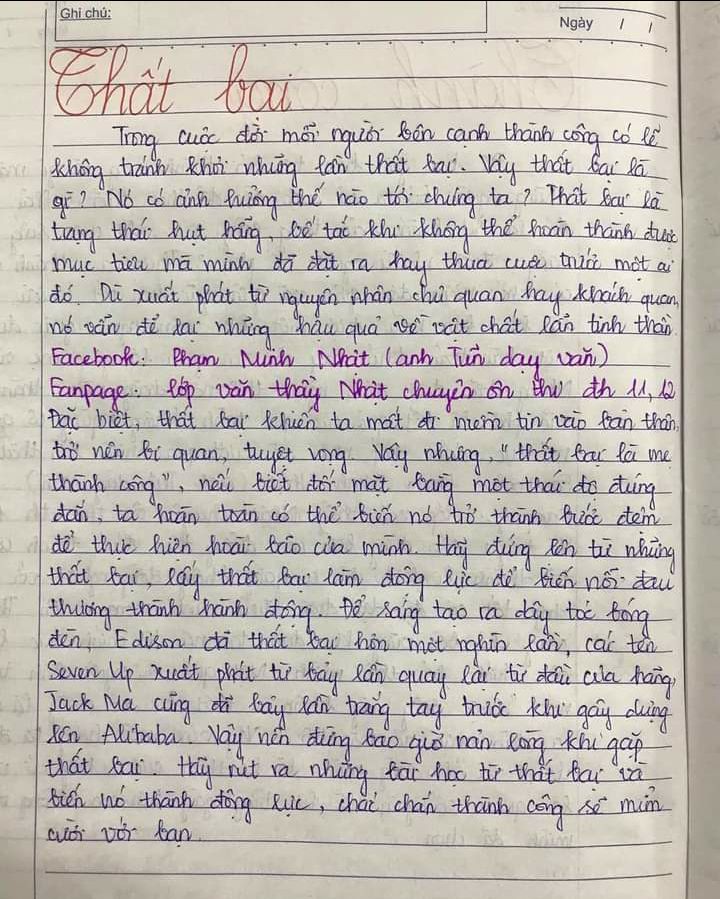 Ghi chú:
Ngày / /
Thất bại
Trong cuộc đời mỗi người bên cạnh thành công có lẽ
không tránh khỏi những lần thất bại. Vậy thất bại là
gì? Nó có ảnh hưởng thế nào tới chúng ta? Thất bại là
trạng thái hụt hẫng, bế tắc khi không thể hoàn thành được
mục tiêu mà mình đã đặt ra hay thua cuộc trước một ai
đó. Dù xuất phát từ nguyên nhân chủ quan hay khách quan,
nó vẫn để lại những hậu quả về vật chất lẫn tinh thần.
Facebook: Phạm Minh Nhật (anh Tun dạy văn)
Fanpage: lớp văn thầy Nhật chuyên ôn thi đh 11, 12
Đặc biệt, thất bại khiến ta mất đi niềm tin vào bản thân,
trở nên bi quan, tuyệt vọng. Vậy nhưng, "thất bại là mẹ
thành công", nếu biết đối mặt bằng một thái độ đúng
đắn, ta hoàn toàn có thể biến nó trở thành bước đệm
để thực hiện hoài bão của mình. Hãy đứng lên từ những
thất bại, lấy thất bại làm động lực để biến nỗi đau
thương thành hành động. Để sáng tạo ra dây tóc bóng
đèn, Edison đã thất bại hơn một nghìn lần, cái tên
Seven Up xuất phát từ bảy lần quay lại từ đầu của hãng,
Jack Ma cũng đã bảy lần trắng tay trước khi gây dựng
lên Alibaba. Vậy nên đừng bao giờ nản lòng khi gặp
thất bại. Hãy rút ra những bài học từ thất bại và
biến nó thành động lực, chắc chắn thành công sẽ mỉm
cười với bạn.